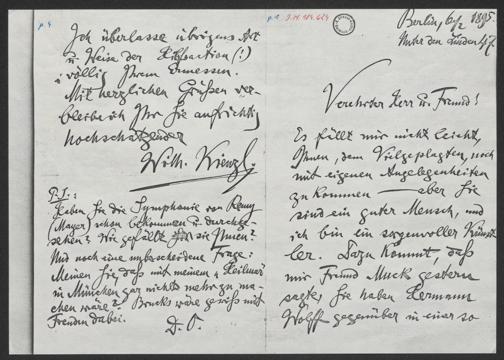 p. 1
I.N. 184.629
Berlin, 6/2 1895
Unter den Linden 47
Verehrter Herr u. Freund!
Es fällt mir nicht leicht,
Ihnen, dem Vielgeplagten, noch
mit eigenen Angelegenheiten
zu kommen — aber Sie
sind ein guter Mensch, und
ich bin ein sorgenvoller Künst-
ler. Dazu kommt, daß
mir Freund Muck gestern
sagte, Sie haben Hermann
Wolff gegenüber in einer so
p. 4
Ich überlasse übrigens Art
u. Weise der (!)
völlig Ihrem Ermessen.
Mit herzlichen Grüßen ver-
bleibe ich Ihr Sie aufrichtig
hochschätzender
Wilh. Kienzl.
P.S.:
Haben Sie die Symphonie von
(Mayer) schon bekommen u. durchge-
sehen? Wie gefällt sie Ihnen?
Und noch eine unbescheidene Frage:
Meinen Sie, daß mit meinem „Heilmar"
in München gar nichts mehr zu ma-
chen wäre? Brucks wäre gewiß mit
Freuden dabei.
D. O.